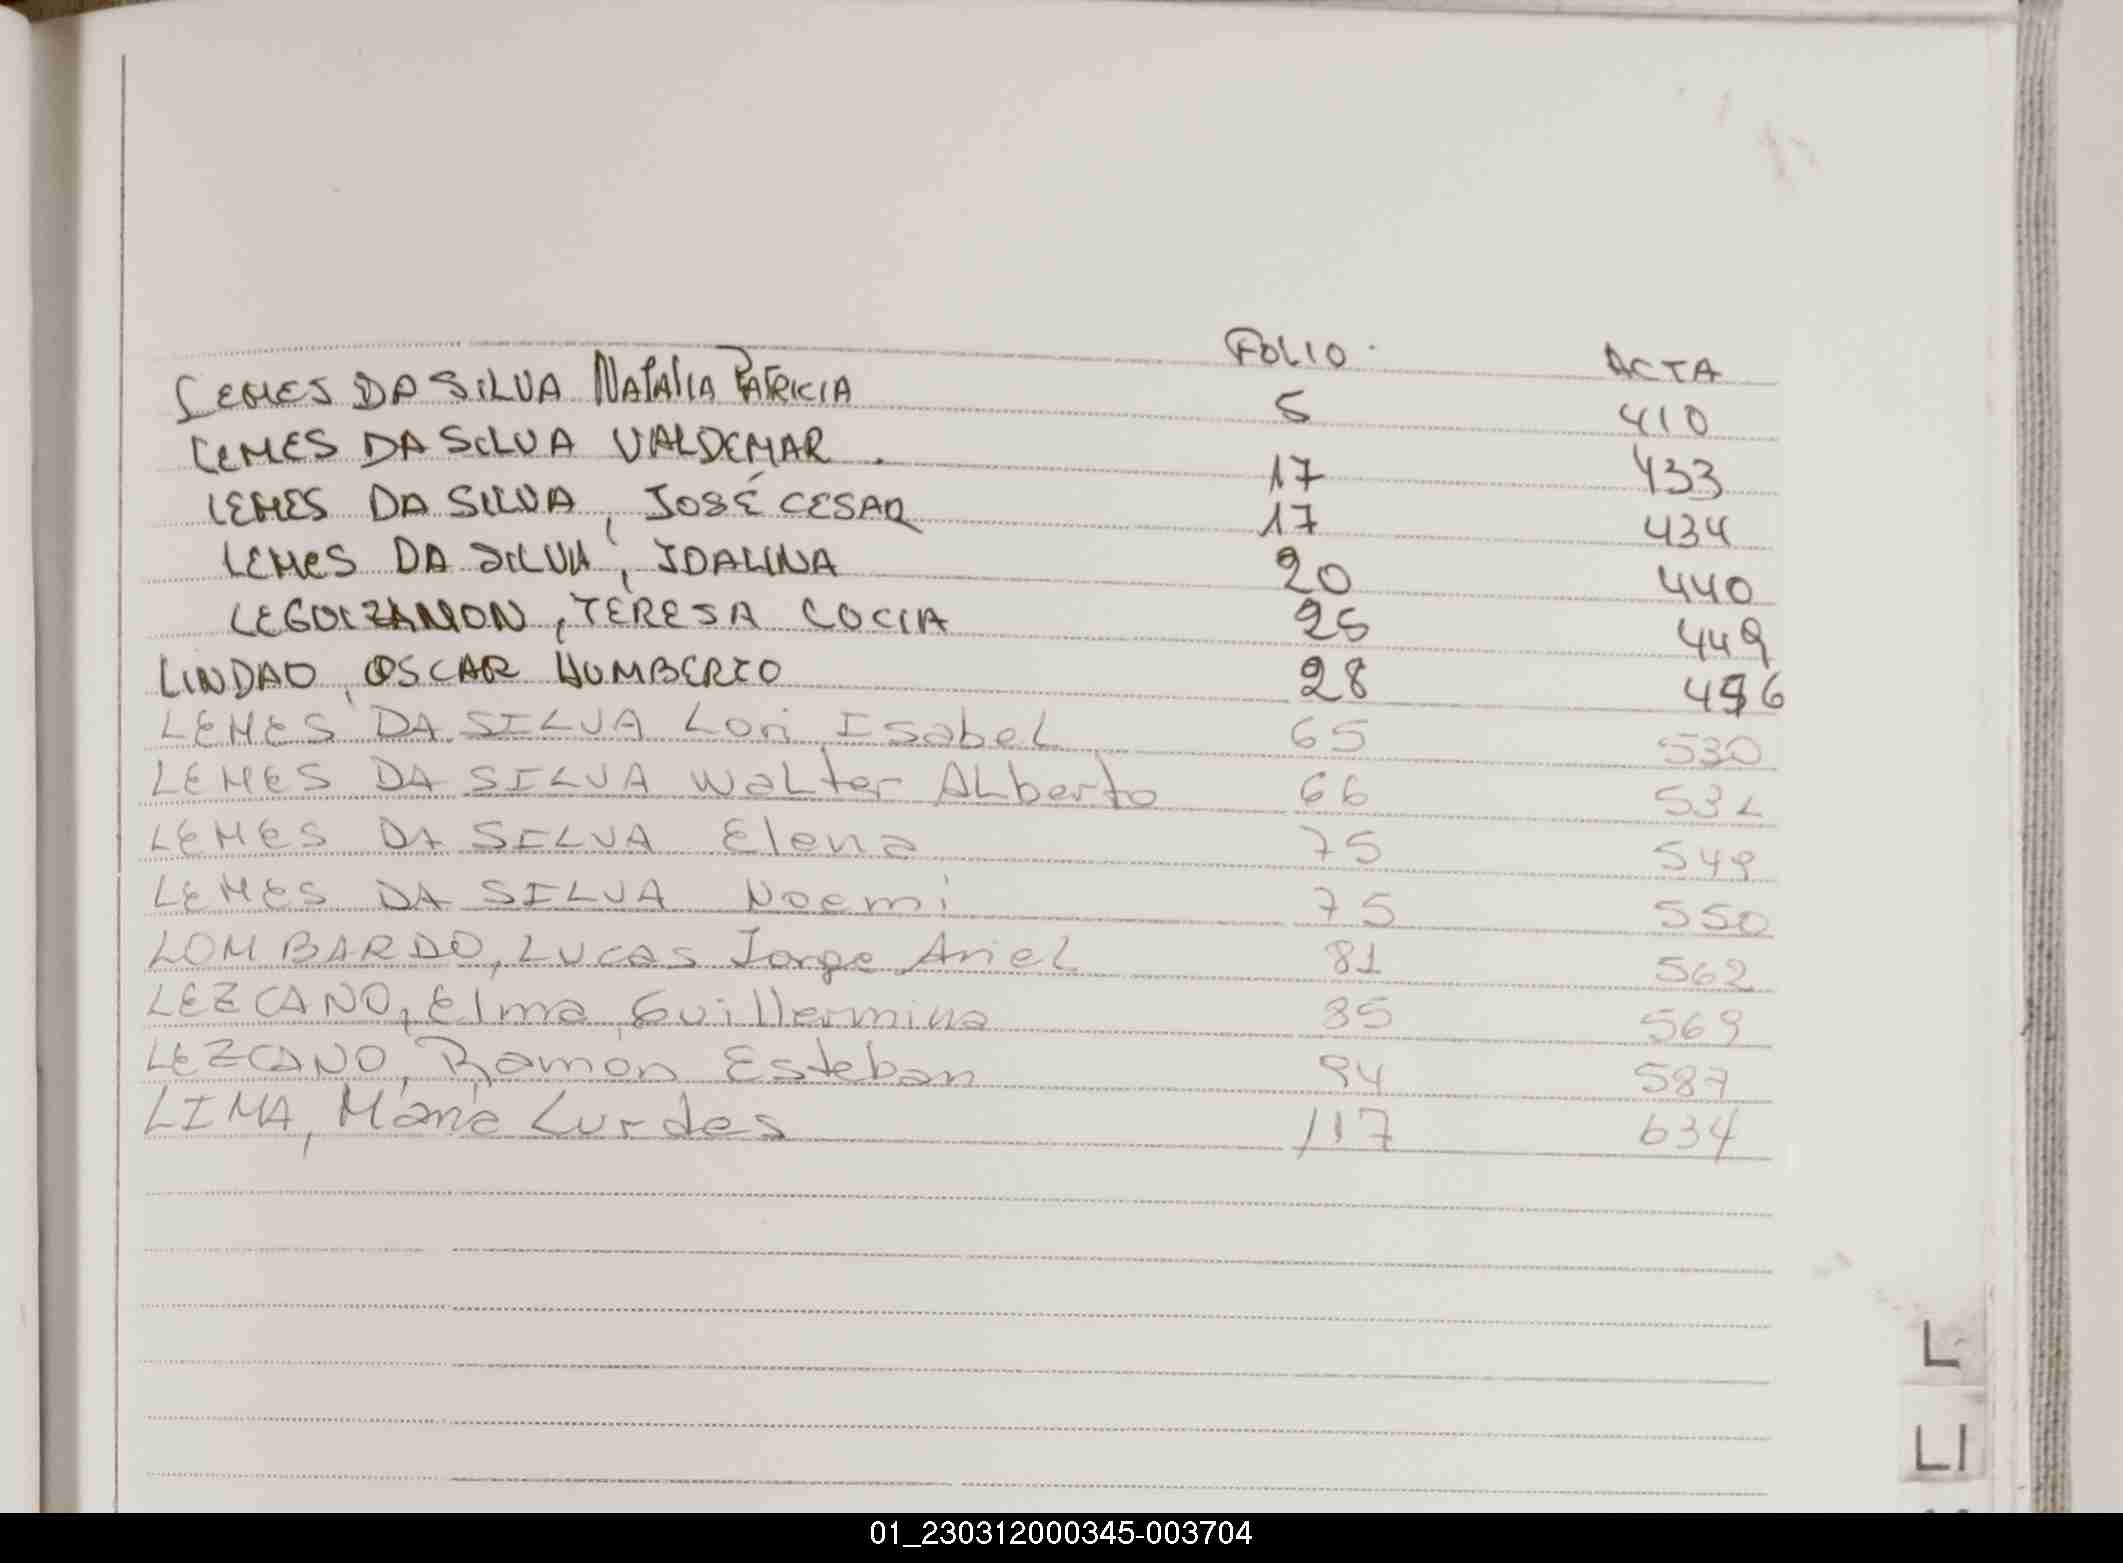 FOLIO ACTA
LEMES DA SILVA NATALIA PATRICIA 5 410
LEMES DA SILVA VALDEMAR. 17 433
LEMES DA SILVA, JOSÉ CESAR 17 434
LEMES DA SILVA, IDALINA 20 440
TERESA 25 449
LINDAO, OSCAR HUMBERTO 28 456
LEMES DA SILVA Lori Isabel 65 530
LEMES DA SILVA Walter Alberto 66 531
LEMES DA SILVA Elena 75 549
LEMES DA SILVA Noemi 75 550
LOMBARDO, Lucas Jorge Ariel 81 562
LEZCANO, Elma Guillermina 85 569
LEZCANO, Ramón Esteban 94 587
LIMA, María Lurdes 117 634
L
LI
01_230312000345-003704